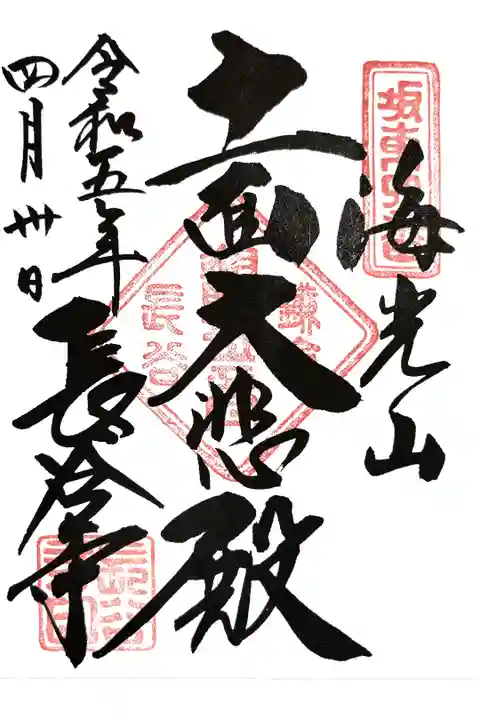 坂東四番
海光山
十一面大悲殿
鎌倉
長谷
長谷寺
令和五年
四月卅日